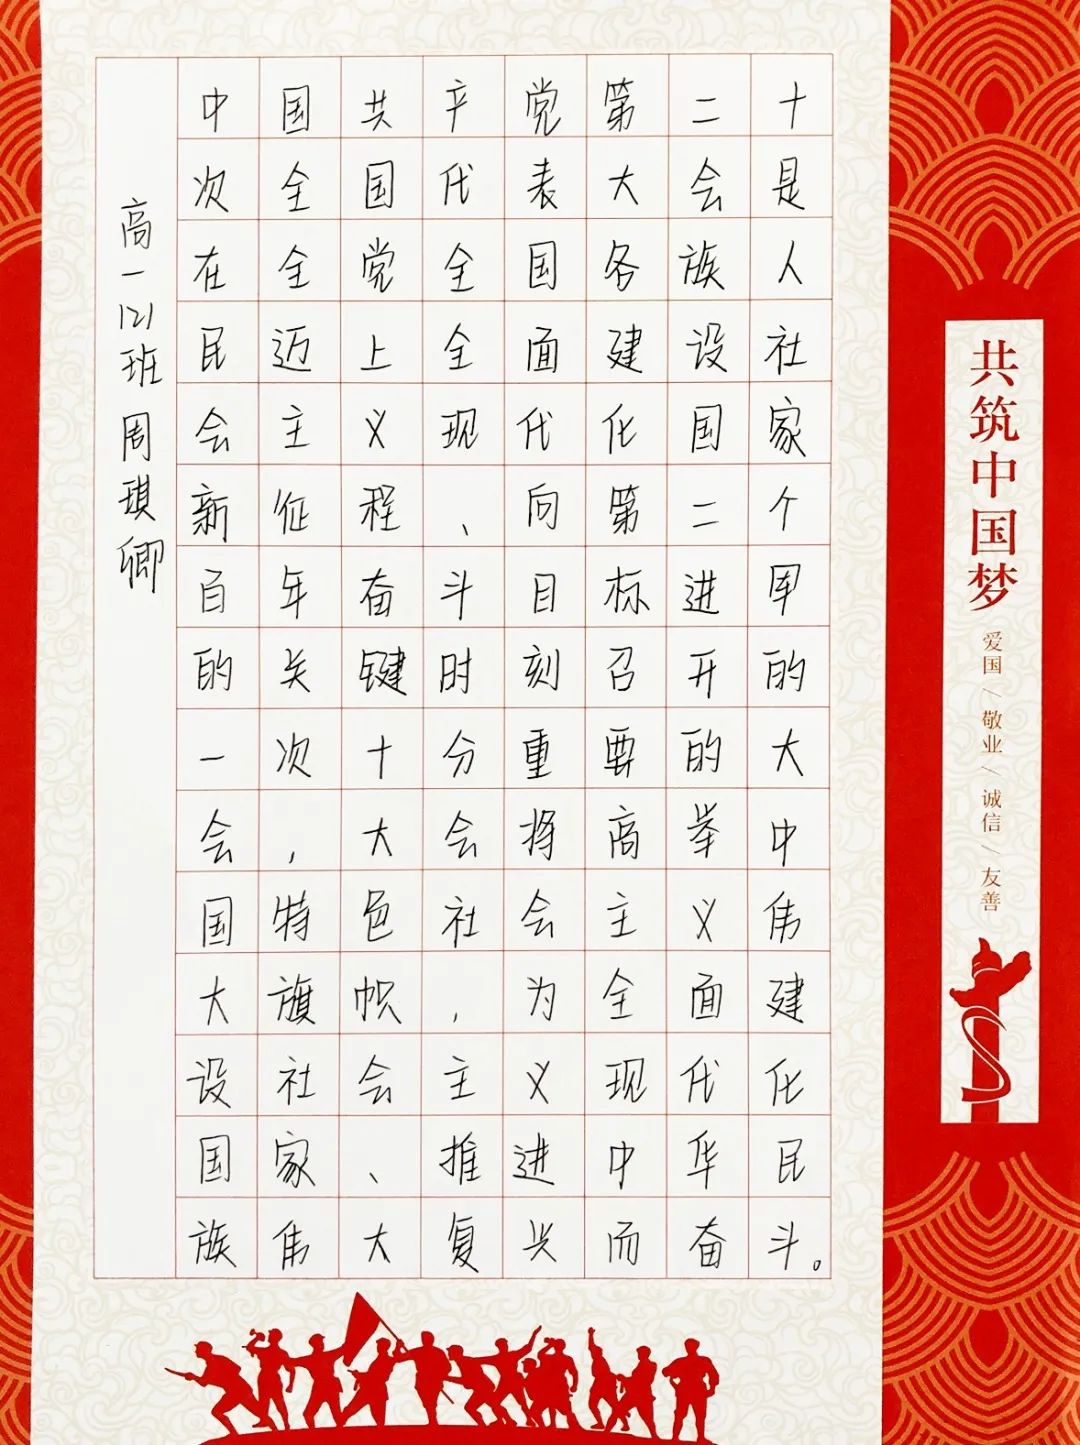 中国共产党第二十
次全国代表大会是
在全党全国各族人
民迈上全面建设社
会主义现代化国家
新征程、向第二个
百年奋斗目标进军
的关键时刻召开的
一次十分重要的大
会，大会将高举中
国特色社会主义伟
大旗帜，为全面建
设社会主义现代化
国家、推进中华民
族伟大复兴而奋斗。
高一121班周琪卿
共筑中国梦
爱国/敬业/诚信/友善